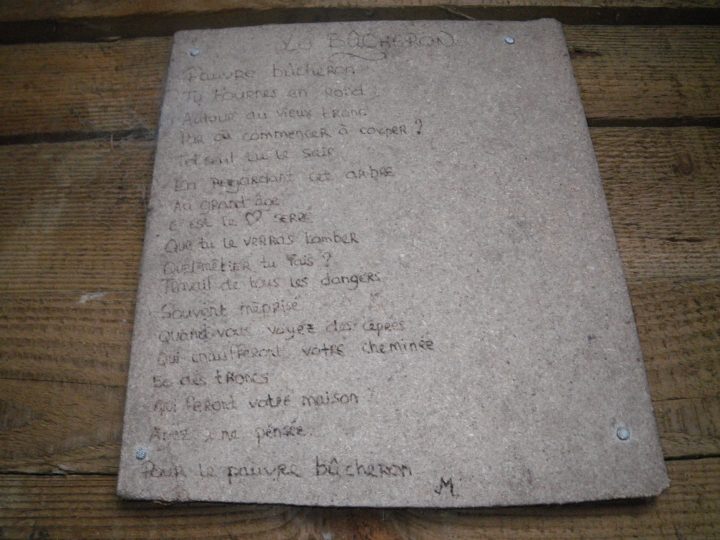 LE BÛCHERON
Pauvre bûcheron
Tu tournes en rond
Autour du vieux tronc
Par où commencer à cogner ?
Toi seul tu le sais
En regardant cet arbre
Au grand âge
C'est le ♡ serré
Que tu le verras tomber
Quel métier tu fais ?
Travail de tous les dangers
Souvent méprisé
Quand vous voyez des cèpres
Qui chaufferont votre cheminée
Et des troncs
Qui feront votre maison
Ayez une pensée
Pour le pauvre bûcheron
M